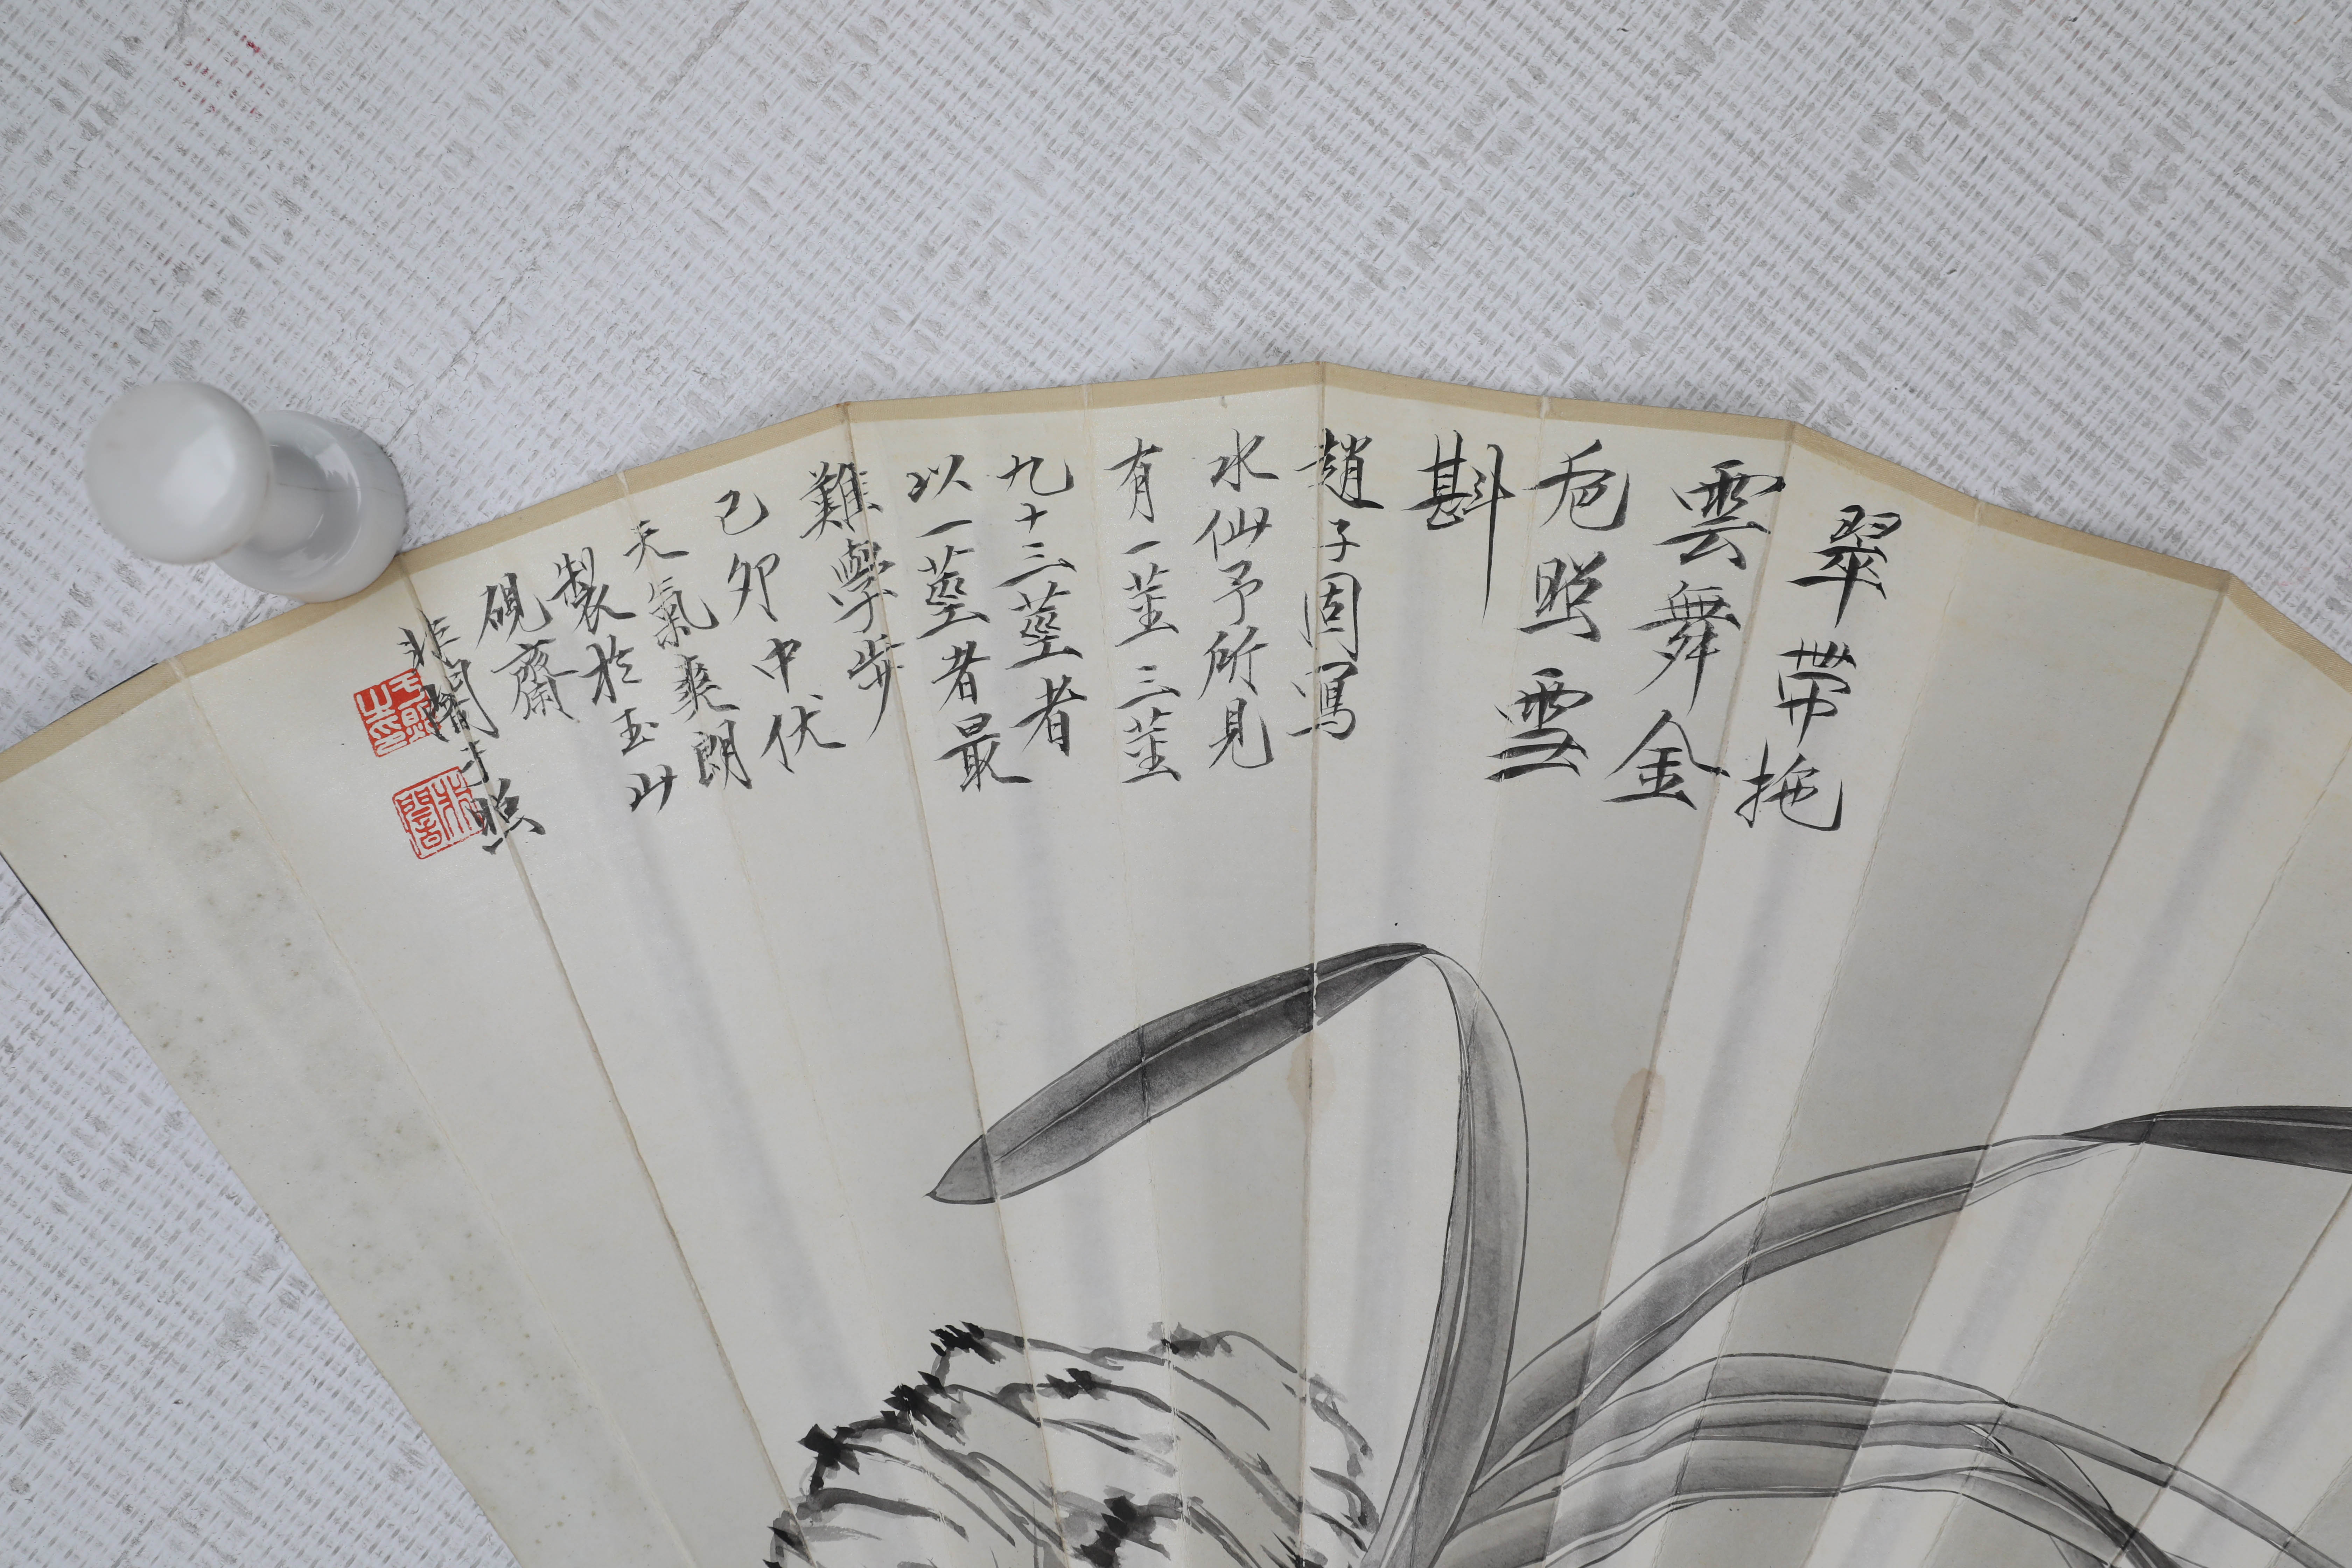 翠帶拖
雲舞金
卮照雪
斟
趙子固寫
水仙予所見
有一莖三莖
九十三莖者
以一莖者最
難學步
己卯中伏
天氣爽朗
製於玉山
硯齋
非闇于照
于照之印
非闇